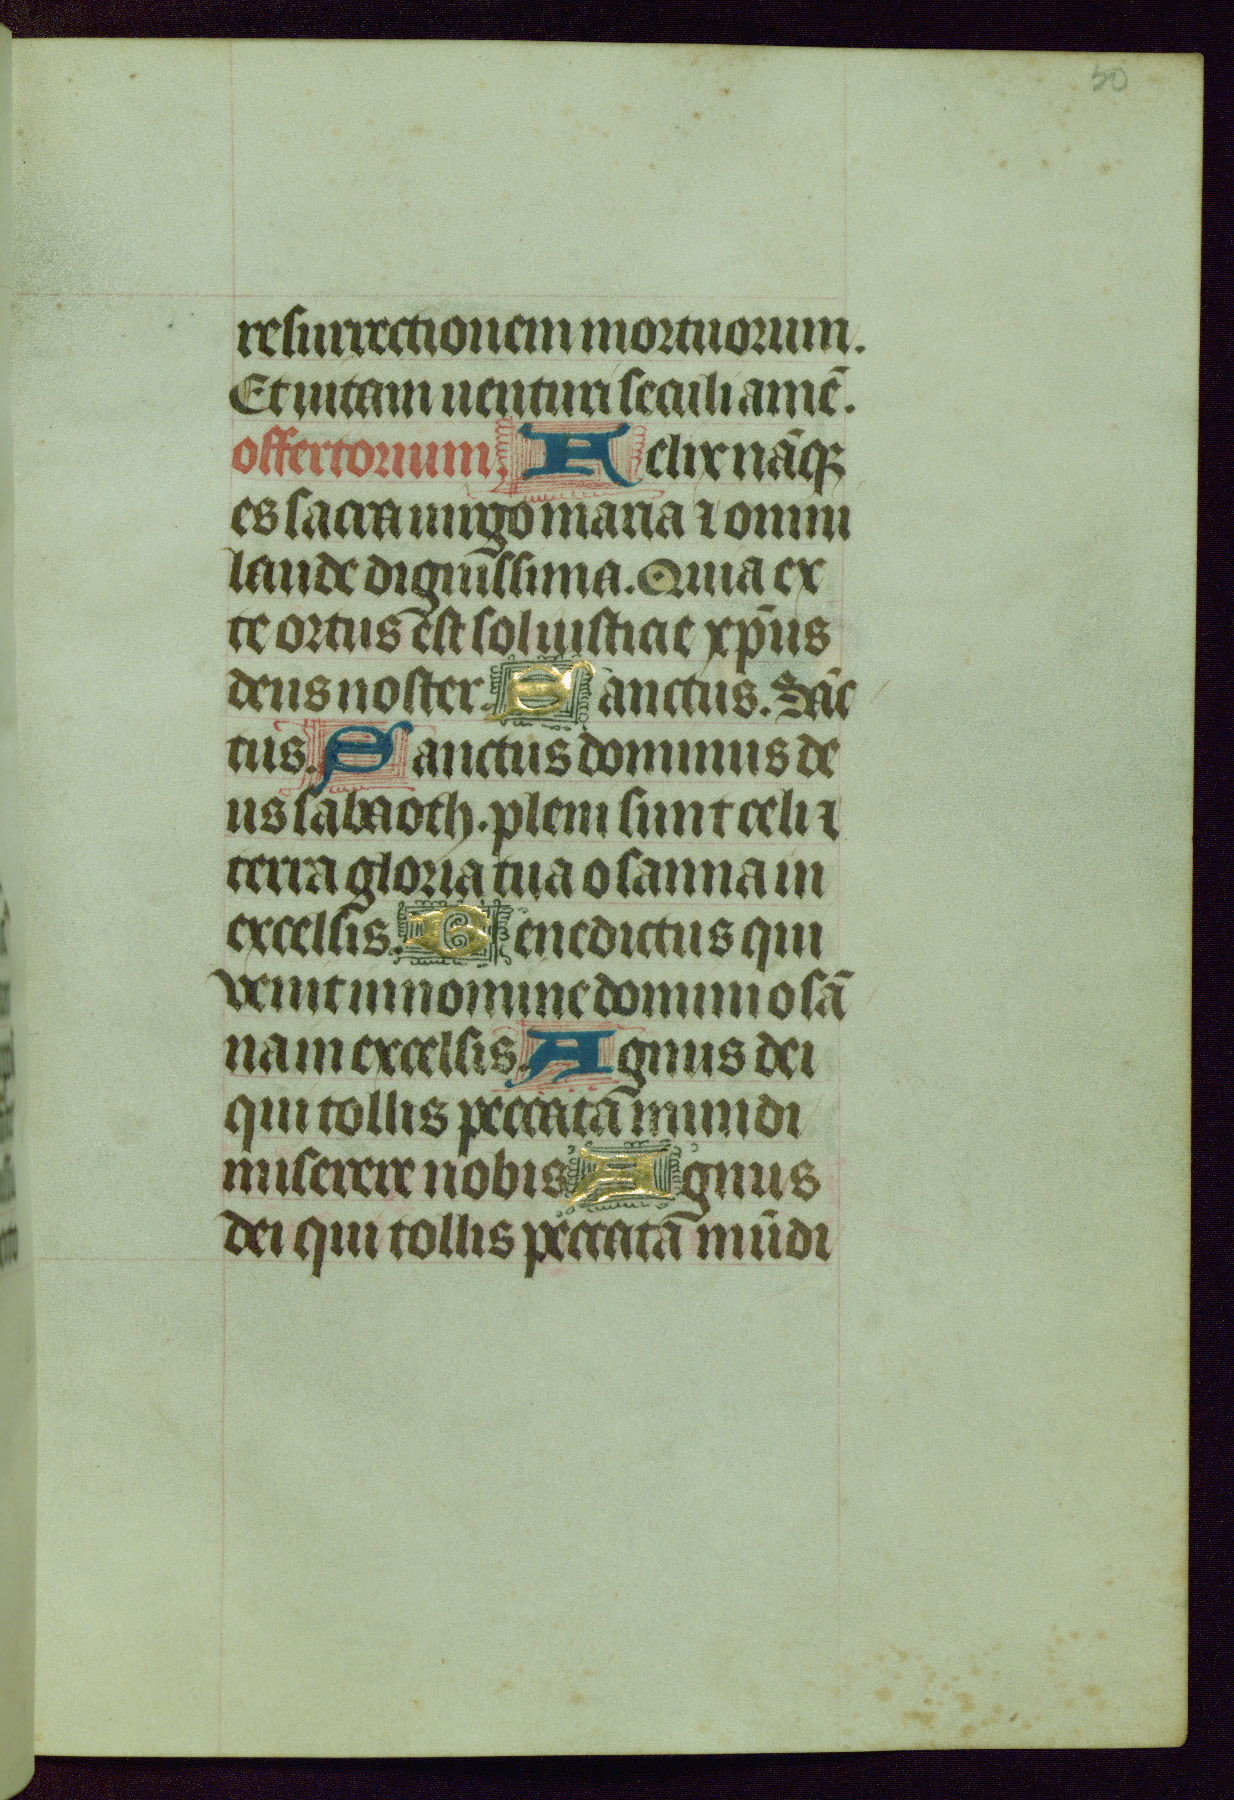 50
resurrectionem mortuorum.
Et uitam uenturi seculi amē.
offertorium. Aelix nāqꝫ
es sacra uirgo maria ⁊ omni
laude digniſſima. Quia ex
te ortus est sol iusticie xp̄us
deus noster. Sanctus. Sāc
tus. Sanctus dominus de
us sabaoth. pleni sunt celi ⁊
terra gloria tua osanna in
excelsis. Benedictus qui
venit in nomine domini osā
na in excelsis. Agnus dei
qui tollis peccatā mundi
miserere nobis Agnus
dei qui tollis peccatā mūdi